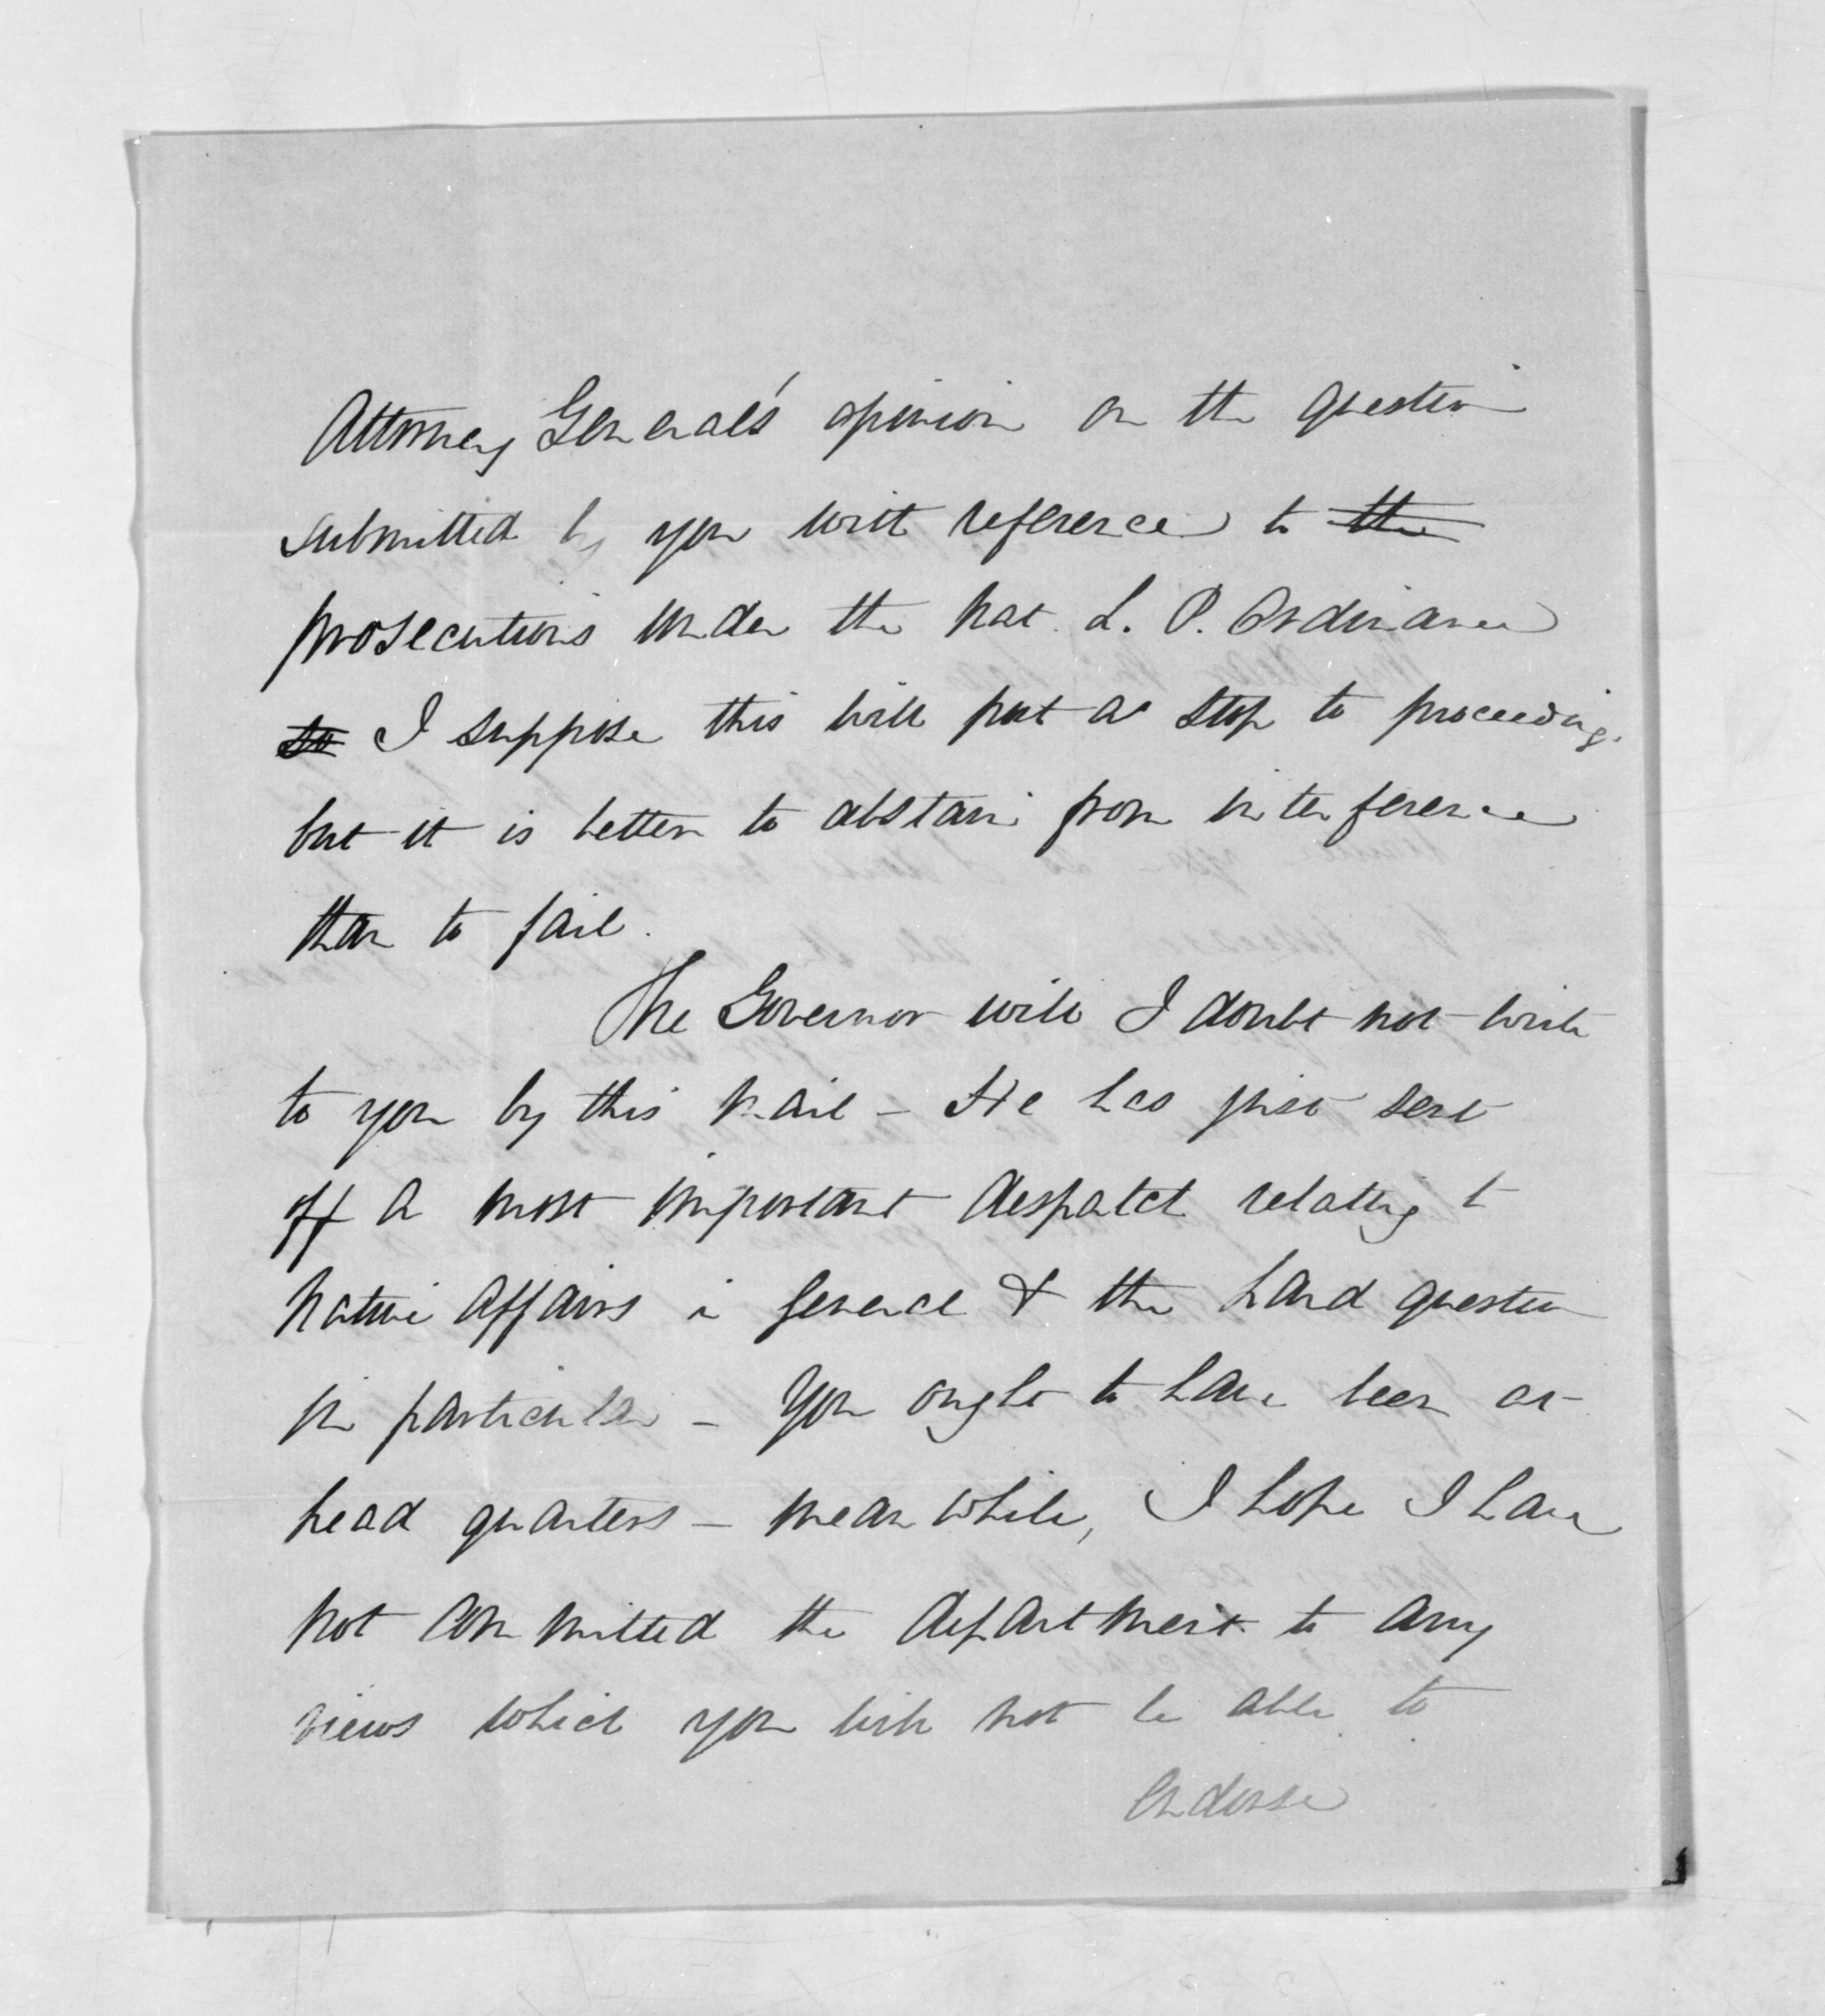 Attorney General's opinion on the question
submitted by you with reference to ~~the~~
prosecutions under the Nat. L. P. Ordinance
~~so~~ I suppose this will put a stop to proceedings
but it is better to abstain from interference
than to fail.
The Governor will I doubt not write
to you by this mail – He has just sent
off a most important despatch relating to
Native Affairs in General & the Land question
in particular – You ought to have been at
head quarters – meanwhile, I hope I have
not committed the department to any
views which you will not be able to
endorse